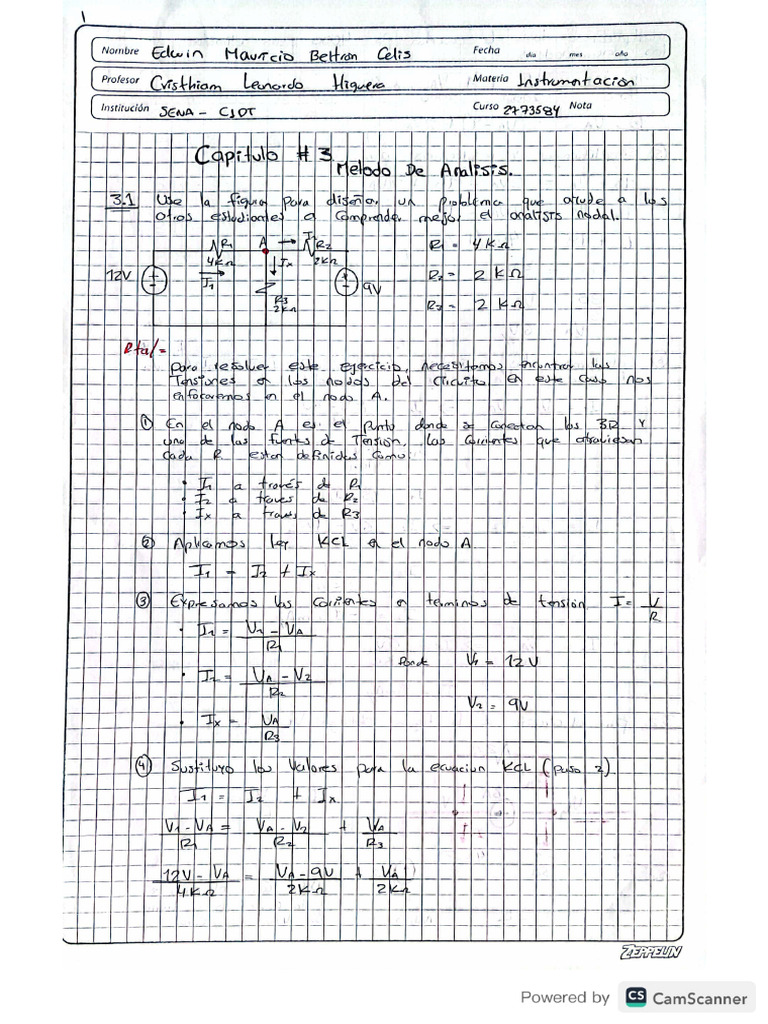 1
Nombre Edwin Mauricio Beltran Celis Fecha dia mes año
Profesor Cristhiam Leonardo Higuera Materia Instrumentación
Institución SENA - CIDT Curso 2773584 Nota
Capitulo # 3
Metodo De Analisis.
3.1 Use la figura para diseñar un problema que ayude a los
otros estudiantes a comprender mejor el analisis nodal.
R1 A → I R2 R1 = 4KΩ
4KΩ ↓ Ix 2KΩ
12V I1 9V R2 = 2KΩ
R3
2KΩ R3 = 2KΩ
Rta/=
para resolver este ejercicio, necesitamos encontrar las
Tensiones en los nodos del circuito en este caso nos
enfocaremos en el nodo A.
① En el nodo A es el punto donde se conectan los 3R y
una de las fuentes de Tensión, las corrientes que atraviesan
cada R estan definidas como:
• I1 a través de R1
• I2 a traves de R2
• Ix a traves de R3
② Aplicamos ley KCL en el nodo A
I1 = I2 + Ix
③ Expresamos las corrientes en terminos de tensión I = V/R
• I1 = V1 - VA / R1
Donde V1 = 12V
• I2 = VA - V2 / R2
V2 = 9V
• Ix = VA / R3
④ Sustituyo los valores para la ecuacion KCL (paso 2).
I1 = I2 + Ix
V1 - VA / R1 = VA - V2 / R2 + VA / R3
12V - VA / 4KΩ = VA - 9V / 2KΩ + VA / 2KΩ
ZEPPELIN
Powered by CS CamScanner